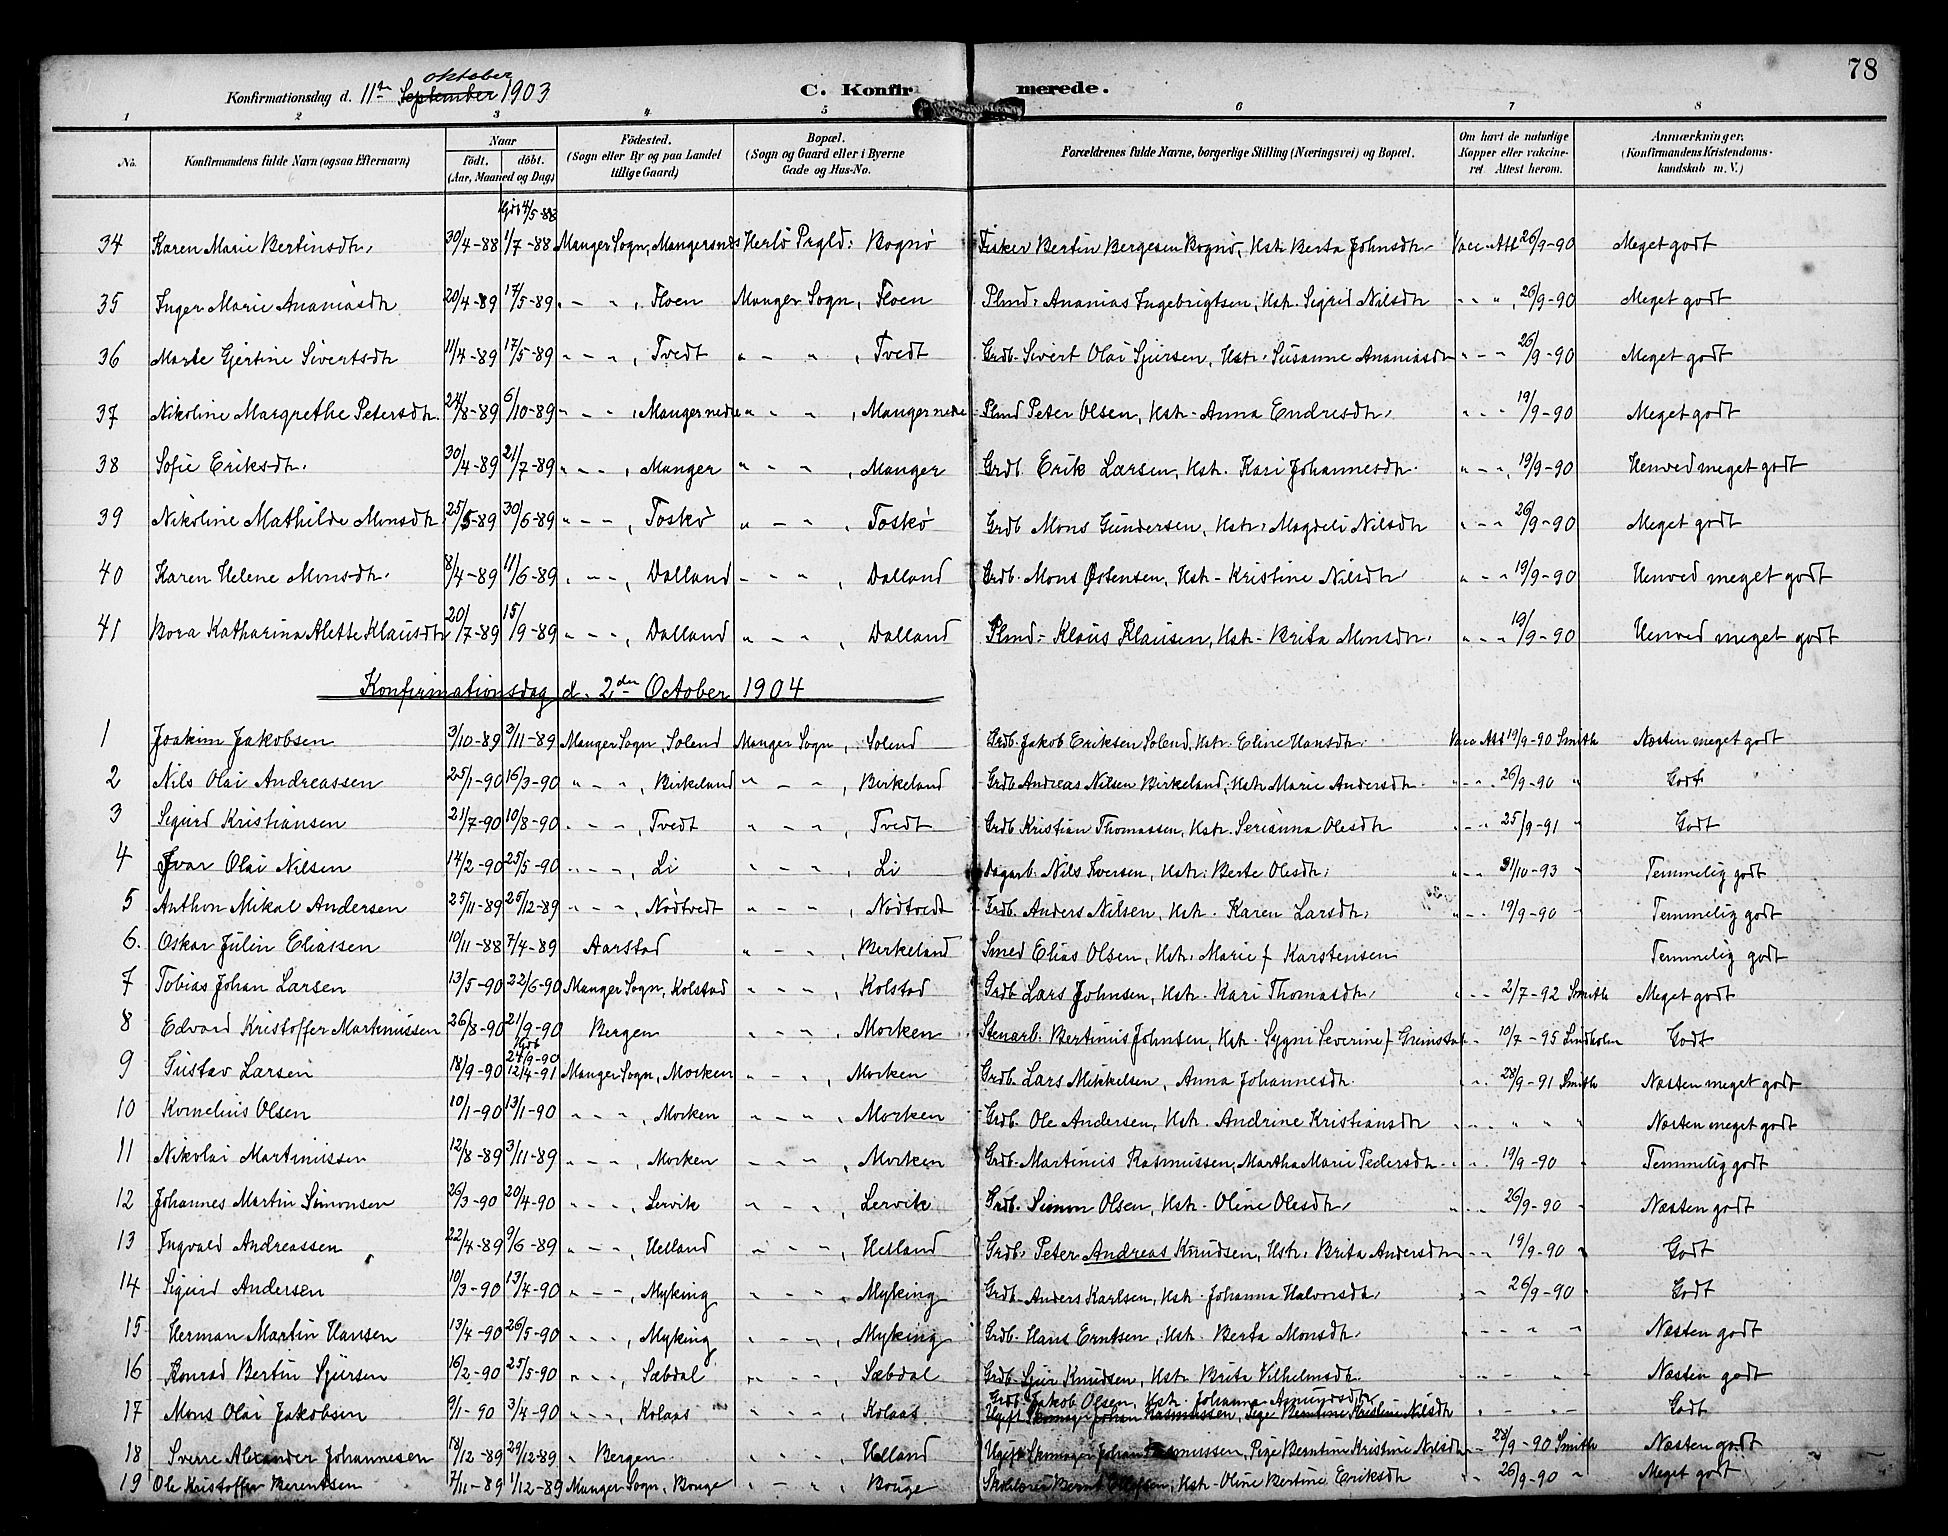 78
Konfirmationsdag d. 11te September oktober 1903 C. Konfirmerede.
1 2 3 4 5 6 7 8
No. Konfirmandens fulde Navn (ogsaa Efternavn) Naar födt. döbt. (Aar, Maaned og Dag) Födested. (Sogn eller By og paa Landet tillige Gaard) Bopæl. (Sogn og Gaard eller i Byerne Gade og Hus-No. Forældrenes fulde Navne, borgerlige Stilling (Næringsvei) og Bopæl. Om havt de naturlige Kopper eller vakcineret. Attest herom. Anmærkninger. (Konfirmandens Kristendomskundskab m. V.)
34 Karen Marie Bertinsdtr. 30/4-88 Hjdt 4/5-88 1/7-88 Manger Sogn, Mangersnes Herlö Prgld: Bognö Fisker Bertin Bergesen Bognö, Hstr. Berta Johnsdtr. Vacc. Att 26/9-90 Meget godt
35 Inger Marie Ananiasdtr 20/4-89 17/5-89 " - ", Floen Manger Sogn, Floen Plmd. Ananias Ingebrigtsen, Hstr. Sigrid Nilsdtr - - ", 26/9-90 Meget godt
36 Marte Gjertine Sivertsdtr 11/4-89 17/5-89 " - -, Tvedt " - ", Tvedt Grdb. Sivert Olai Sjursen, Hstr. Susanne Ananiasdtr " - - 26/9-90 Meget godt
37 Nikoline Margrethe Petersdtr. 24/8-89 6/10-89 " - -, Manger nedre " - ", Manger nedre Plmd Peter Olsen, Hstr. Anna Endresdtr. " - - 19/9-90 Meget godt
38 Sofie Eriksdtr. 30/4-89 21/7-89 " - -, Manger " - -, Manger Grdb. Erik Larsen, Hstr. Kari Johannesdtr. " - -, 19/9-90 Henved meget godt
39 Nikoline Mathilde Monsdtr. 25/5-89 30/6-89 " - -, Toskö " - -, Toskö Grdb Mons Gundersen, Hstr. Magdeli Nilsdtr " - - 26/9-90 Meget godt
40 Karen Helene Monsdtr. 8/4-89 11/6-89 " - -, Dalland - - ", Dalland Grdb. Mons Østensen, Hstr. Kristine Nilsdtr " - - 19/9-90 Henved meget godt
41 Bora Katharina Alette Klausdtr 20/7-89 15/9-89 " - -, Dalland " - -, Dalland Plmd. Klaus Klausen, Hstr. Brita Monsdtr. " - - 19/9-90 Henved meget godt
Konfirmationsdag d. 2den October 1904
1 Joakim Jakobsen 3/10-89 3/11-89 Manger Sogn, Solend Manger Sogn, Solend Grdb. Jakob Eriksen Solend, Hstr. Eline Hansdtr. Vacc Att 19/9-90 Smith Næsten meget godt
2 Nils Olai Andreassen 25/1-90 16/3-90 " - -, Birkeland " - -, Birkeland Grdb Andreas Nilsen Birkeland, Hstr Marie Andersdtr. " - - 26/9-90 " Godt
3 Sigurd Kristiansen 21/7-90 10/8-90 " - -, Tvedt " - -, Tvedt Grdb Kristian Thomassen, Hstr. Serianna Olesdtr " - - 25/9-91 " Godt
4 Ivar Olai Nilsen 14/2-90 25/5-90 " - -, Li " - -, Li Dagarb. Nils Iversen, Hstr. Berte Olesdtr. " - 31/10-93 " Temmelig godt
5 Anthon Mikal Andersen 25/11-89 26/12-89 " - -, Nödtvedt " - -, Nödtvedt Grdb. Anders Nilsen, Hstr. Karen Larsdtr. " - - 19/9-90 - Temmelig godt
6. Oskar Julin Eliassen 10/11-88 7/4-89 Aarstad " - -, Birkeland Smed Elias Olsen, Hstr. Marie f. Karstensen Temmelig godt
7 Tobias Johan Larsen 13/5-90 22/6-90 Manger Sogn, Kolstad " - -, Kolstad Grdb Lars Johnsen, Hstr. Kari Thomasdtr. " - - 2/7-92 Smith Meget godt
8 Edvard Kristoffer Martinussen 26/8-90 21/9-90 Bergen " - -, Morken Stenarb. Bertinus Johnsen, Hstr. Sygni Severine f. Grimstad - - 10/7-95 Lindholm Godt
9 Gustav Larsen 18/9-90 Hjdt 24/9-90 12/4-91 Manger Sogn, Morken " - -, Morken Grdb. Lars Mikkelsen, Anna Johannesdtr. " - 28/9-91 Smith Næsten meget godt
10 Kornelius Olsen 10/1-90 13/1-90 " - -, Morken " - -, Morken Grdb. Ole Andersen, Hstr. Andrine Kristiansdtr " - " " " Næsten meget godt
11 Nikolai Martinussen 12/8-89 3/11-89 " - -, Morken " - -, Morken Grdb. Martinus Rasmussen, Martha Marie Pedersdtr. " - 19/9-90 " Temmelig godt
12 Johannes Martin Simonsen 26/3-90 20/4-90 " - -, Lervik " - -, Lervik Grdb. Simon Olsen, Hstr. Oline Olesdtr. " - - 26/9-90 " Næsten godt
13 Ingvald Andreassen 22/4-89 9/6-89 " - -, Helland " - -, Helland Grdb. Peter Andreas Knudsen, Hstr. Brita Andersdtr - - 19/9-90 " Godt
14 Sigurd Andersen 10/3-90 13/4-90 " - -, Myking " - -, Myking Grdb. Anders Karlsen, Hstr. Johanna Halvorsdtr. " - 26/9-90 " Godt
15 Herman Martin Hansen 13/4-90 26/5-90 " - -, Myking " - -, Myking Grdb. Hans Erntsen, Hstr. Berta Monsdtr. " - - " " Næsten godt
16 Konrad Bertin Sjursen 16/2-90 25/5-90 " - -, Sæbdal " - -, Sæbdal Grdb. Sjur Knudsen, Hstr Brita Vilhelmsdtr. " - - " " Næsten godt
17 Mons Olai Jakobsen 9/1-90 3/4-90 " - -, Kolaas " - -, Kolaas Grdb. Jakob Olsen, Hstr. Johanna Amundsdtr Ugift Skomager Johan Rasmussen, Pige Berntine Kristine Nilsdtr " - - - Godt
18 Sverre Alexander Johannesen 18/12-89 29/12-89 " Bergen " - -, Helland Ugift Skomager Johan Rasmussen, Pige Berntine Kristine Nilsdtr - 28/9-90 Smith Næsten godt
19 Ole Kristoffer Berentsen 7/11-89 1/12-89 Manger Sogn, Bouge " - -, Bouge Hstr. Oline Bertine Eriksdtr " " 26/9-90 " Meget godt